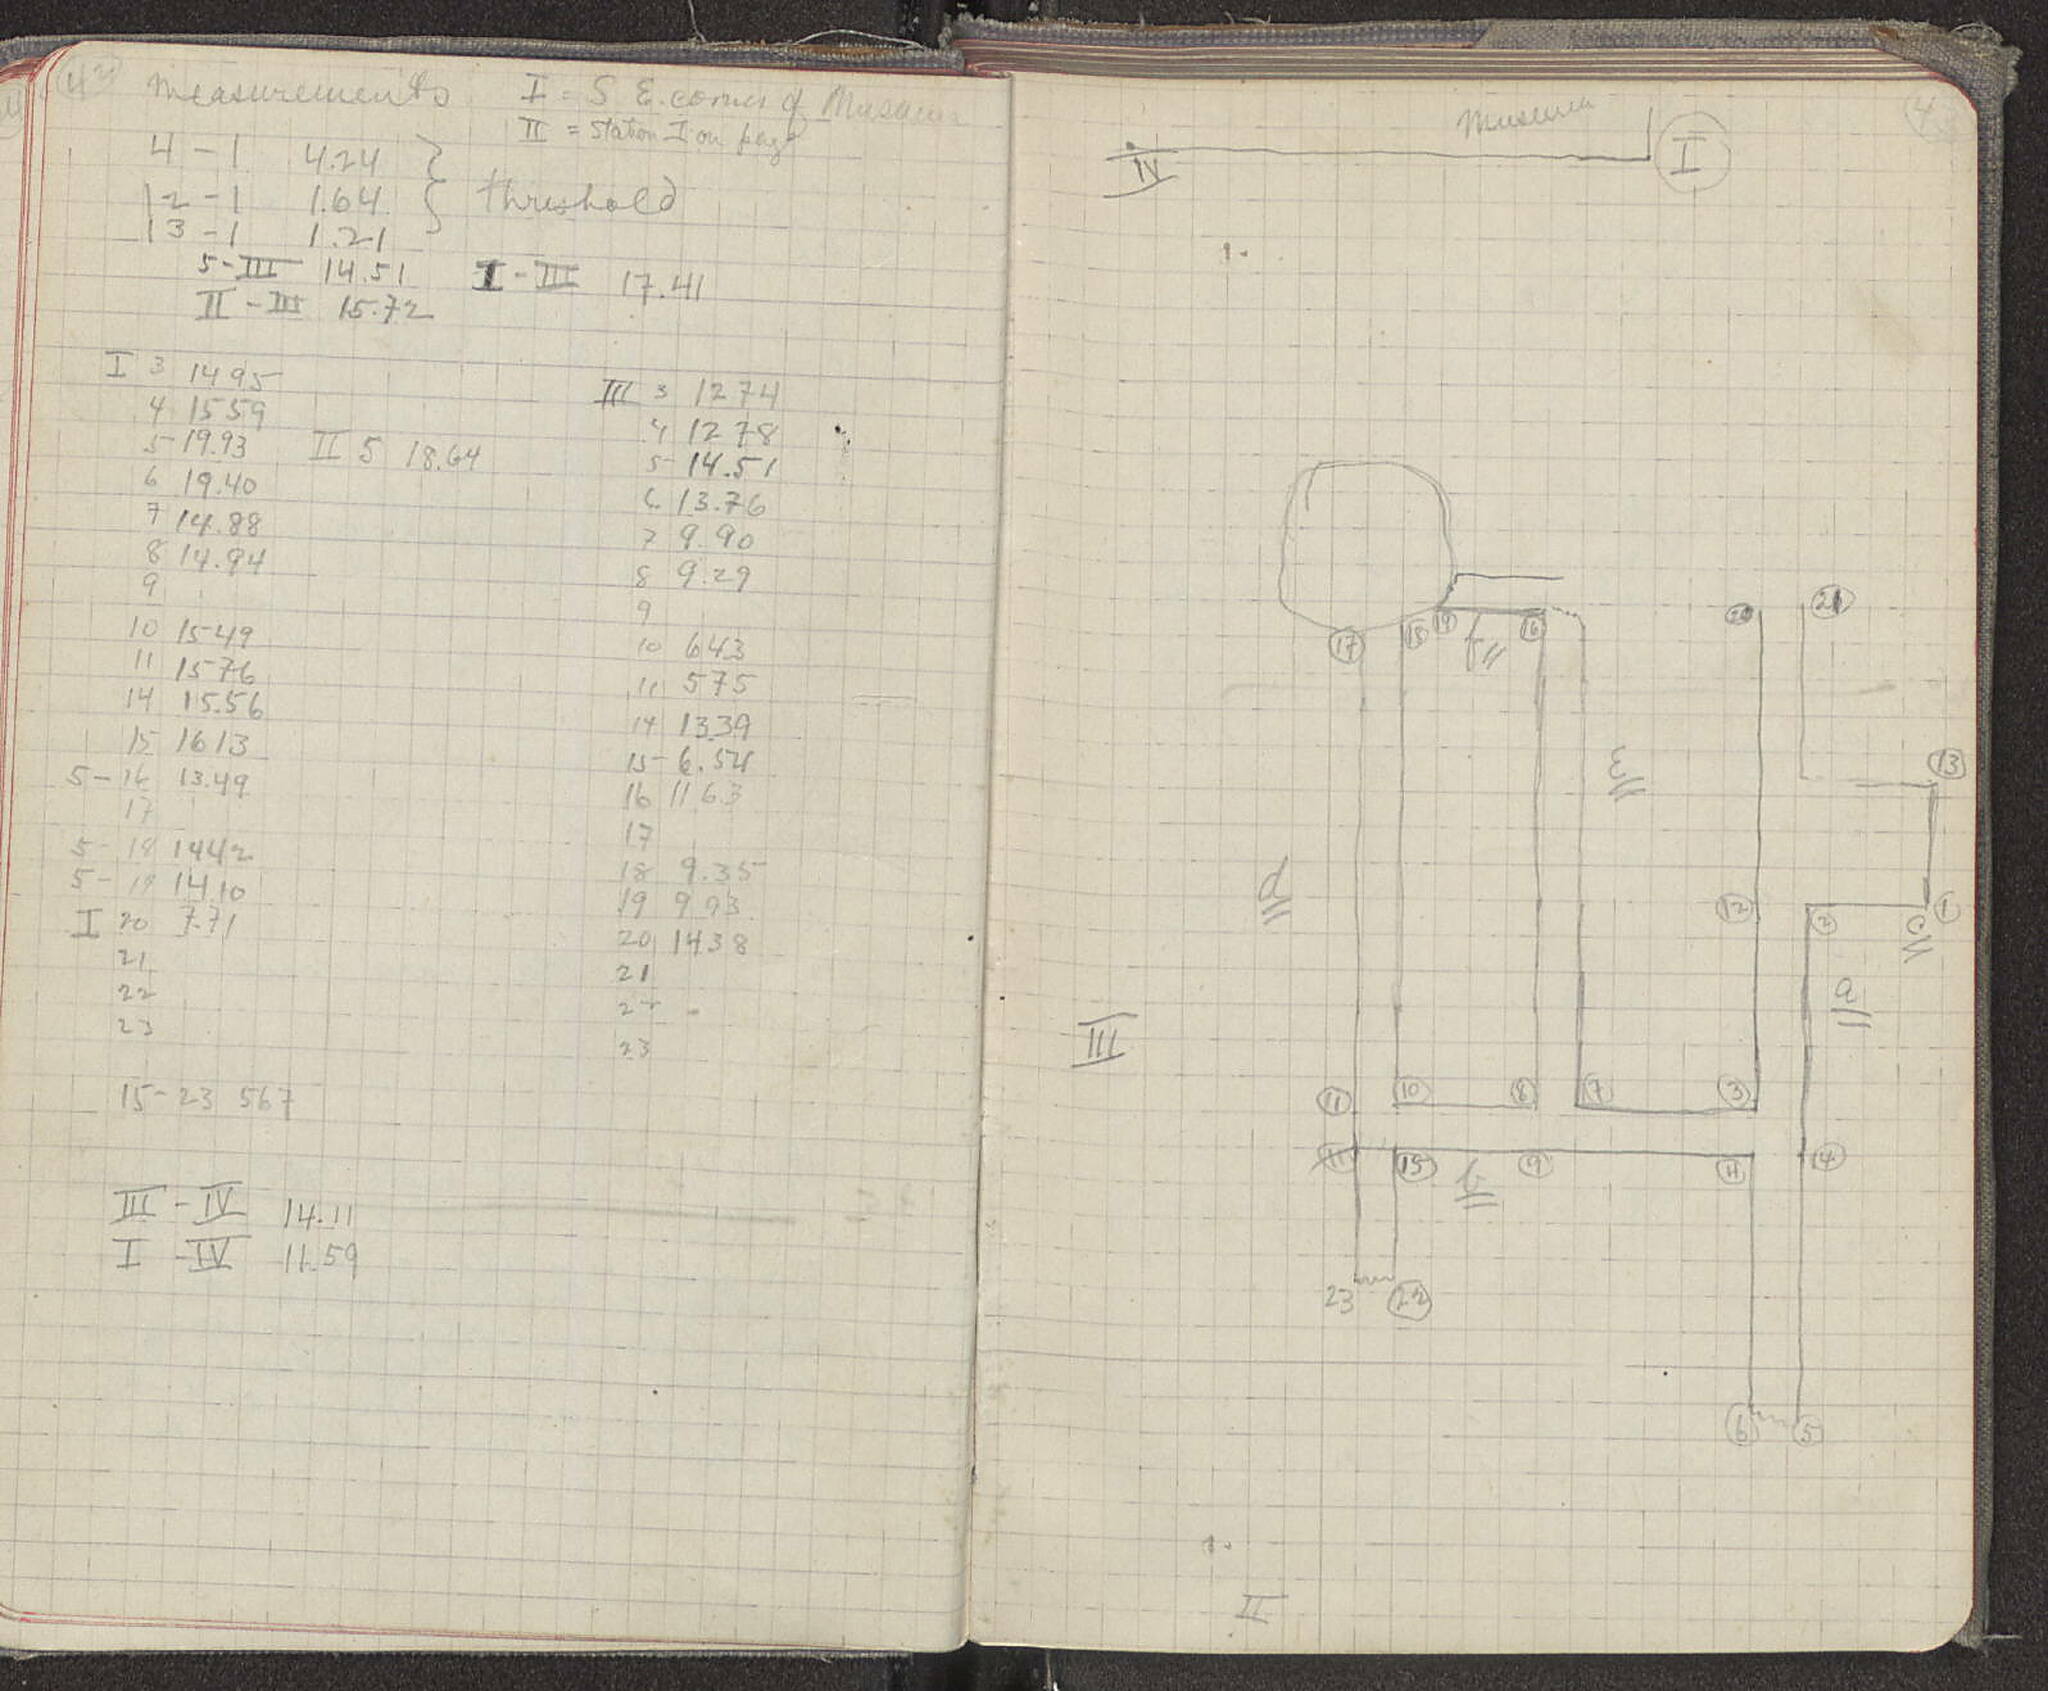 42 measurements I = S E. corner of Museum
II = Station I on page
4 - 1 4.24
12 - 1 1.64 threshold
13 - 1 1.21
5 - III 14.51 I - III 17.41
II - III 15.72
I 3 1495
4 1559
5 19.93 II 5 18.64
6 19.40
7 14.88
8 14.94
9
10 1549
11 1576
14 15.56
15 1613
5 - 16 13.49
17
5 - 18 1442
5 - 19 14.10
I 20 7.71
21
22
23
15 - 23 567
III - IV 14.11
I - IV 11.59
III 3 1274
4 1278
5 14.51
6 13.76
7 9.90
8 9.29
9
10 643
11 575
14 1339
15 6.54
16 1163
17
18 9.35
19 993
20 1438
21
22
23
Museum
IV I
20 21
17 18 19 16
f
13
ε
d
12 2 1
c
a
III
11 10 8 7 3
11 15 9 14 4
b
23 22
6 5
II